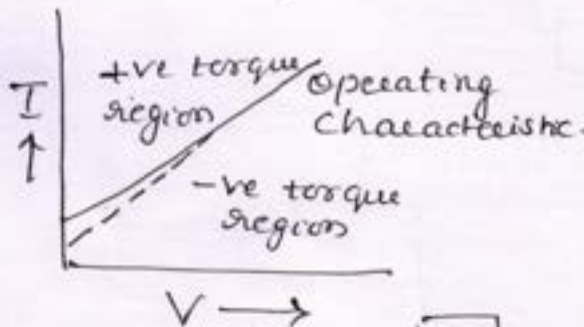 +ve torque
region
Operating
Characteristic.
I
↑
-ve torque
region
V →